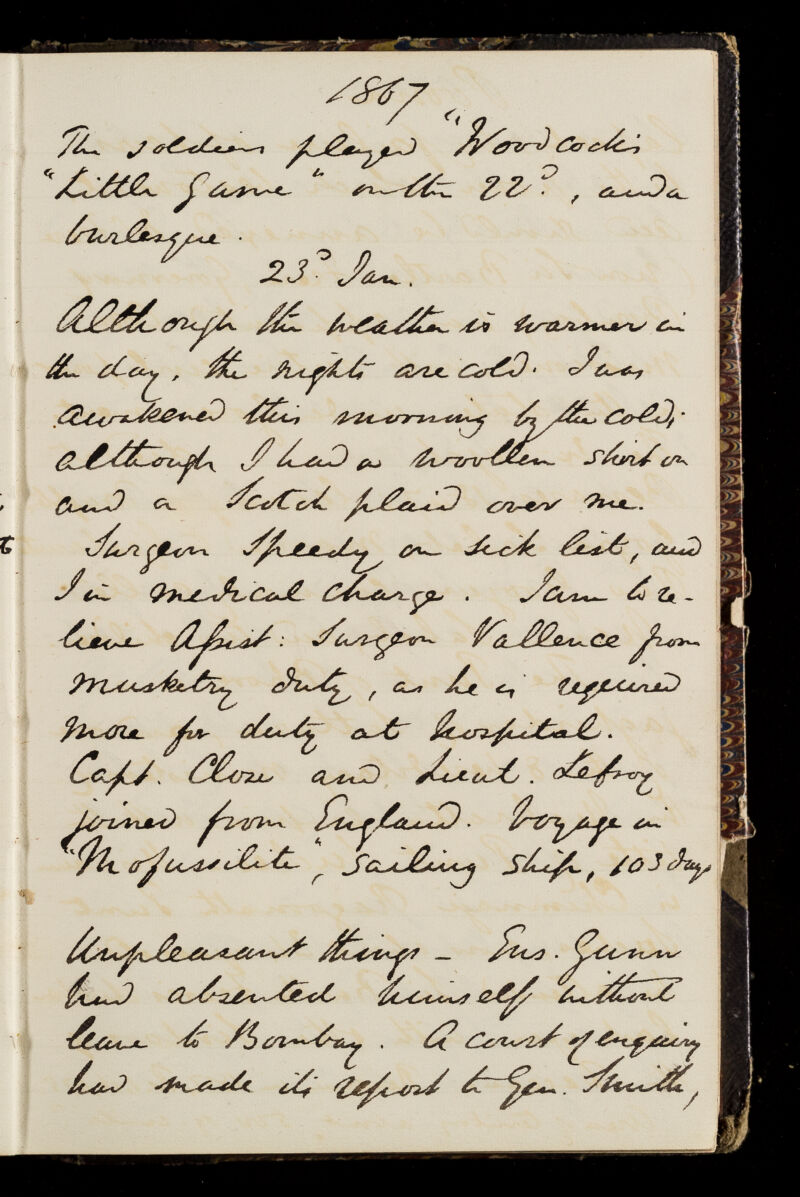 1867
The soldiers played "Woodcock's
"Little Game" on the 22d., and a
burlesque.
23d. Jan.
Although the weather is warmer in
the day, the nights are cold. I was
awakened this morning by the cold,
although I had a woollen shirt on
and a Scotch plaid over me.
Surgeon Speedy on sick list, and
I in medical charge. I am to re-
lieve Assist: Surgeon Vallence from
musketry duty, as he is required
more for duty at hospital.
Capt. Close and Lieut. Lefroy
joined from England. Voyage in
"Mofussilite", sailing ship, 103 days
Unpleasant things – Ens. Gunn
had absented himself without
leave to Bombay. A court of enquiry
had made its report to Gen. Smith,